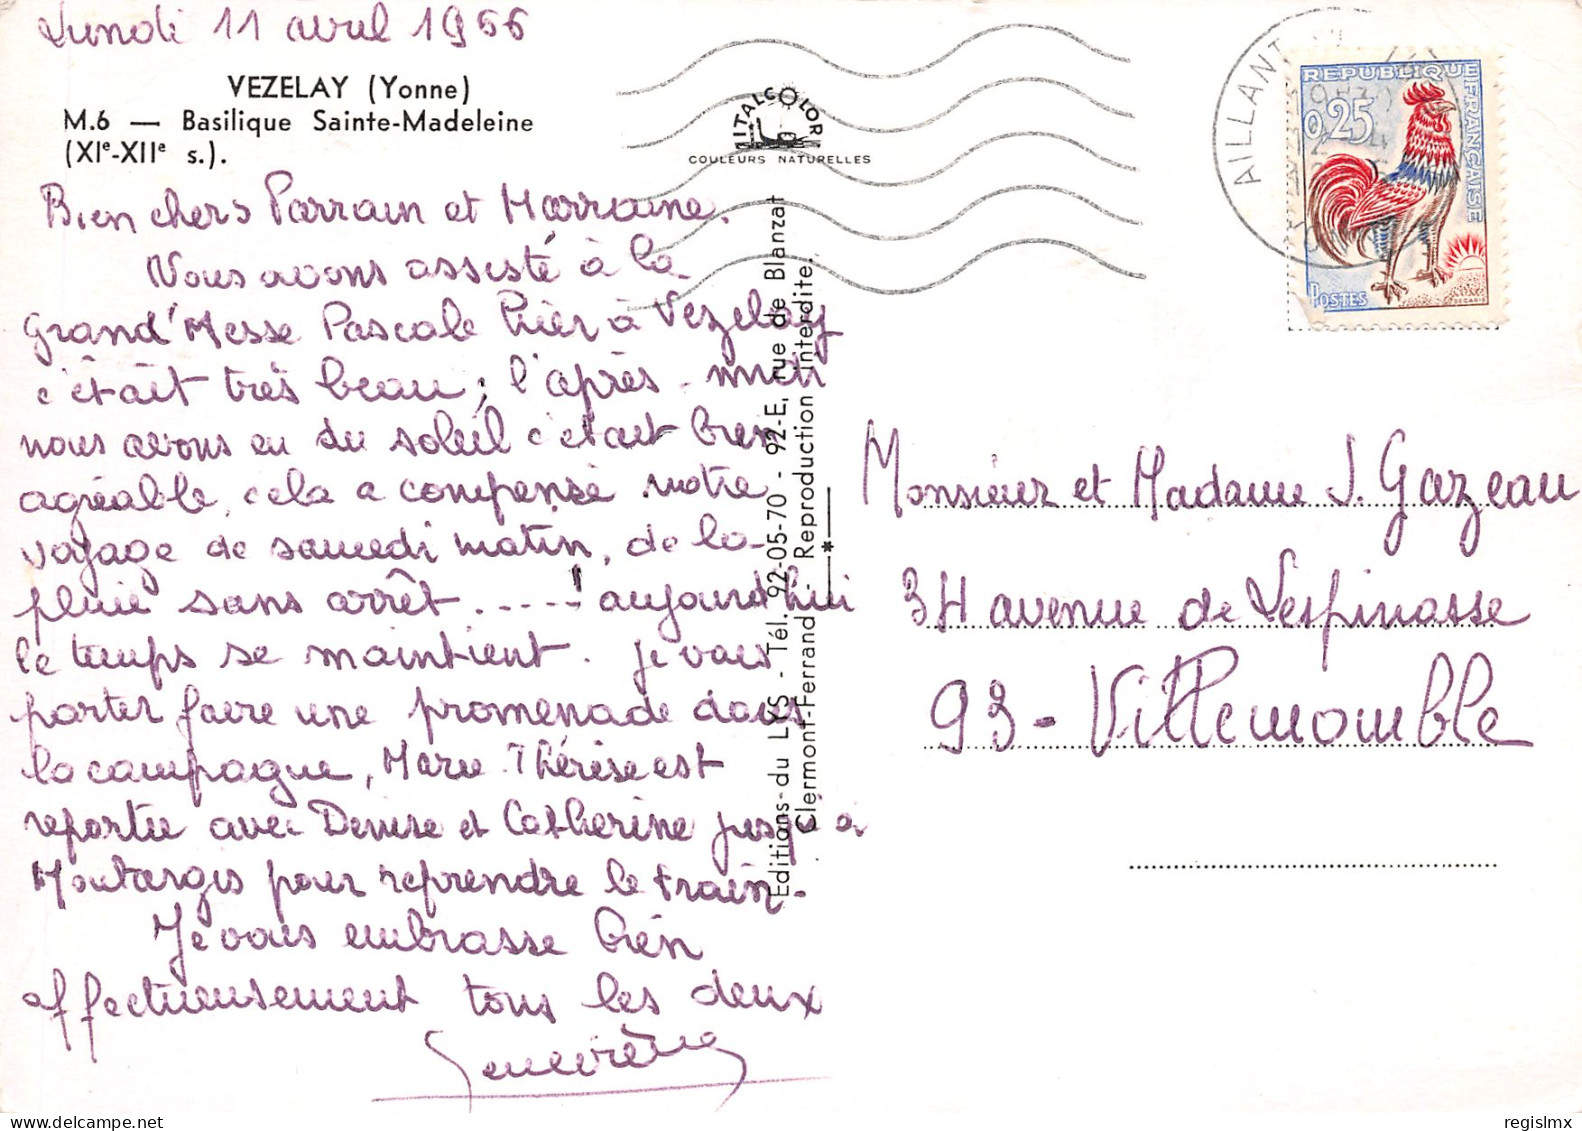 Lundi 11 avril 1966
VEZELAY (Yonne)
M.6 — Basilique Sainte-Madeleine
(XIe-XIIe s.).
Bien chers Parrain et Marraine.
Nous avons assisté à la
Grand'Messe Pascale hier à Vezelay
c'était très beau ; l'après-midi
nous avons eu du soleil c'était bien
agréable, cela a compensé notre
voyage de samedi matin, de la
pluie sans arrêt .....! aujourd'hui
le temps se maintient. Je vais
partir faire une promenade dans
la campagne, Marie-Thérèse est
repartie avec Denise et Catherine jusqu'à
Montargis pour reprendre le train.
Je vous embrasse bien
affectueusement tous les deux
Geneviève
ITALCOLOR
COULEURS NATURELLES
Editions du LYS - Tél. 92-05-70 - 92-E, rue de Blanzat
Clermont-Ferrand - Reproduction interdite.
AILLANT
REPUBLIQUE FRANÇAISE
0,25
POSTES
DECARIS
Monsieur et Madame J. Gazeau
34 avenue de Lespinasse
93 - Villemomble
regislmx